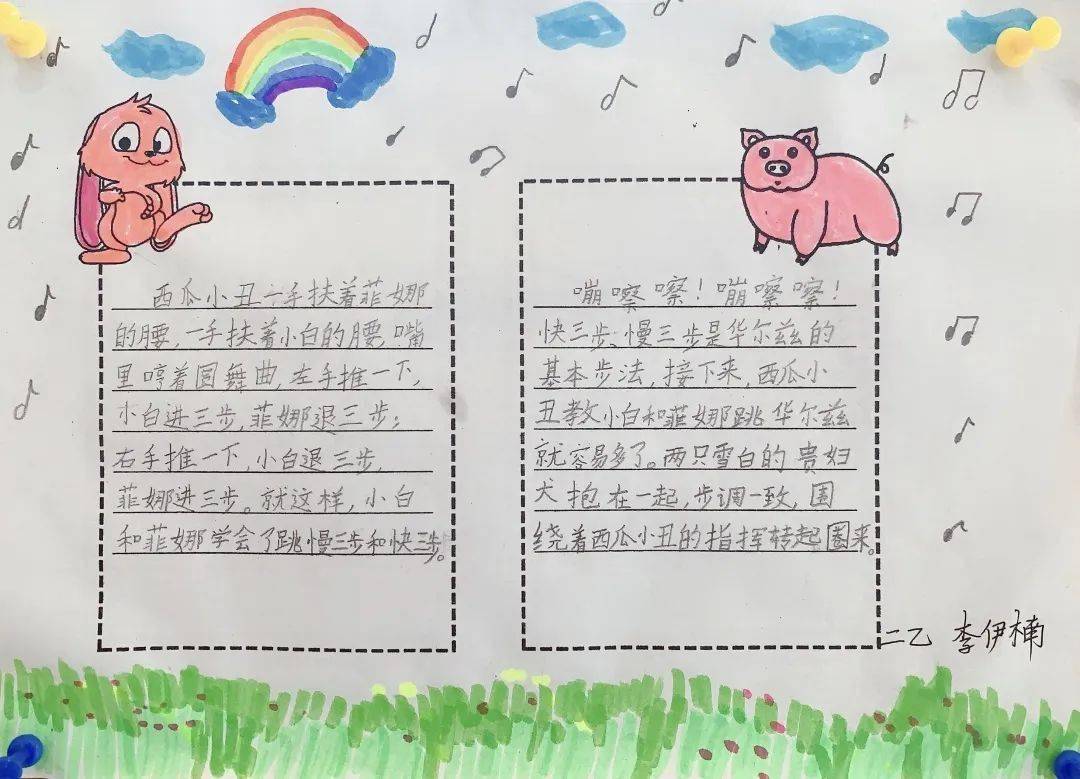 西瓜小丑一手扶着菲娜
的腰,一手扶着小白的腰,嘴
里哼着圆舞曲,左手推一下,
小白进三步,菲娜退三步;
右手推一下,小白退三步,
菲娜进三步。就这样,小白
和菲娜学会了跳慢三步和快三步。
嘣嚓嚓!嘣嚓嚓!
快三步、慢三步是华尔兹的
基本步法,接下来,西瓜小
丑教小白和菲娜跳华尔兹
就容易多了。两只雪白的贵妇
犬抱在一起,步调一致,围
绕着西瓜小丑的指挥转起圈来。
二乙 李伊楠